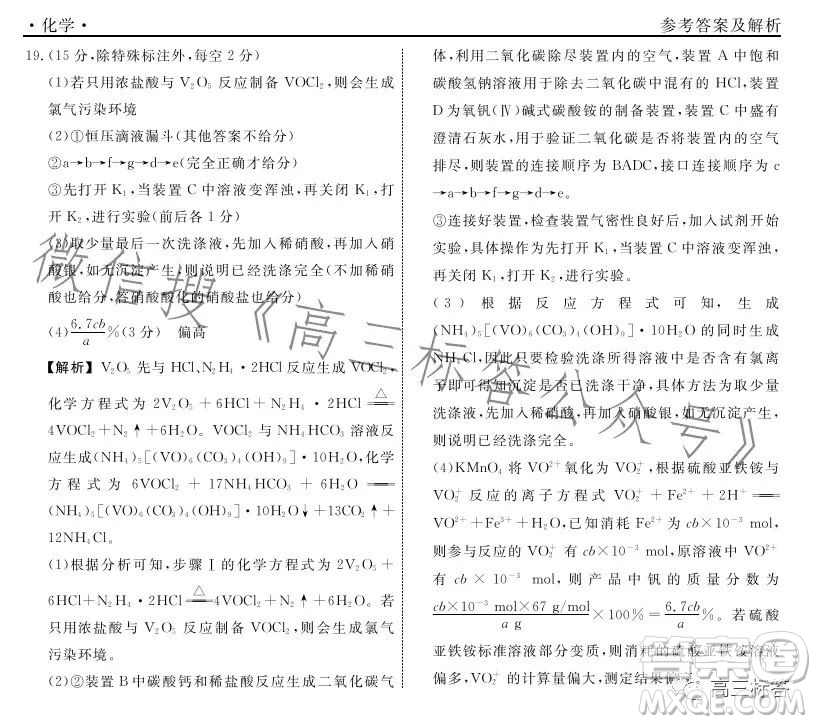 ·化学·
参考答案及解析
19.(15分,除特殊标注外,每空2分)
(1)若只用浓盐酸与V₂O₅反应制备VOCl₂,则会生成
氯气污染环境
(2)①恒压滴液漏斗(其他答案不给分)
②a→b→f→g→d→e(完全正确才给分)
③先打开K₁,当装置C中溶液变浑浊,再关闭K₁,打
开K₂,进行实验(前后各1分)
(3)取少量最后一次洗涤液,先加入稀硝酸,再加入硝
酸银,如无沉淀产生,则说明已经洗涤完全(不加稀硝
酸也给分,答硝酸酸化的硝酸盐也给分)
(4)6.7cb/a%(3分) 偏高
【解析】V₂O₅先与HCl、N₂H₄·2HCl反应生成VOCl₂,
化学方程式为2V₂O₅+6HCl+N₂H₄·2HCl \xlongequal{△}
4VOCl₂+N₂↑+6H₂O。VOCl₂与NH₄HCO₃溶液反
应生成(NH₄)₅[(VO)₆(CO₃)₄(OH)₉]·10H₂O,化学
方程式为6VOCl₂+17NH₄HCO₃+6H₂O══
(NH₄)₅[(VO)₆(CO₃)₄(OH)₉]·10H₂O↓+13CO₂↑+
12NH₄Cl。
(1)根据分析可知,步骤Ⅰ的化学方程式为2V₂O₅+
6HCl+N₂H₄·2HCl \xlongequal{△} 4VOCl₂+N₂↑+6H₂O。若
只用浓盐酸与V₂O₅反应制备VOCl₂,则会生成氯气
污染环境。
(2)②装置B中碳酸钙和稀盐酸反应生成二氧化碳气
体,利用二氧化碳除尽装置内的空气,装置A中饱和
碳酸氢钠溶液用于除去二氧化碳中混有的HCl,装置
D为氧钒(Ⅳ)碱式碳酸铵的制备装置,装置C中盛有
澄清石灰水,用于验证二氧化碳是否将装置内的空气
排尽,则装置的连接顺序为BADC,接口连接顺序为c
→a→b→f→g→d→e。
③连接好装置,检查装置气密性良好后,加入试剂开始
实验,具体操作为先打开K₁,当装置C中溶液变浑浊,
再关闭K₁,打开K₂,进行实验。
(3)根据反应方程式可知,生成
(NH₄)₅[(VO)₆(CO₃)₄(OH)₉]·10H₂O的同时生成
NH₄Cl,因此只要检验洗涤所得溶液中是否含有氯离
子即可得知沉淀是否已经洗涤干净,具体方法为取少量
洗涤液,先加入稀硝酸,再加入硝酸银,如无沉淀产生,
则说明已经洗涤完全。
(4)KMnO₄将VO²⁺氧化为VO₂⁺,根据硫酸亚铁铵与
VO₂⁺反应的离子方程式VO₂⁺+Fe²⁺+2H⁺══
VO²⁺+Fe³⁺+H₂O,已知消耗Fe²⁺为cb×10⁻³ mol,
则参与反应的VO₂⁺有cb×10⁻³ mol,原溶液中VO²⁺
有cb×10⁻³ mol,则产品中钒的质量分数为
cb×10⁻³ mol×67 g/mol/a g×100%=6.7cb/a%。若硫酸
亚铁铵标准溶液部分变质,则消耗的硫酸亚铁铵溶液
偏多,VO₂⁺偏大,测定结果偏高。
微信搜《高三标答公众号》
答案圈
MXQE.COM
高三标答